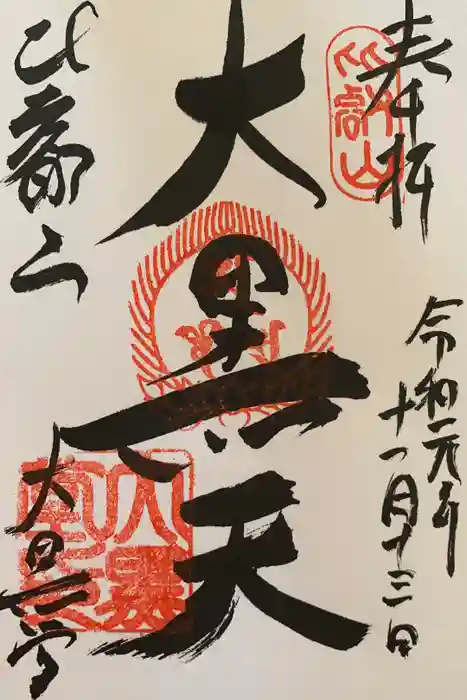 奉拝
令和元年
十一月十三日
比叡山
大黒天
比叡山
大黒堂